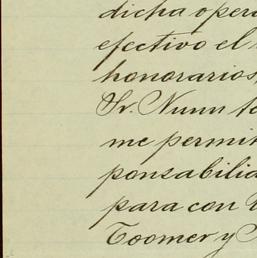 dicha oper
efectivo el
honorarios,
Sr. Nunn
me permi
ponsabilid
para con
Toomer y